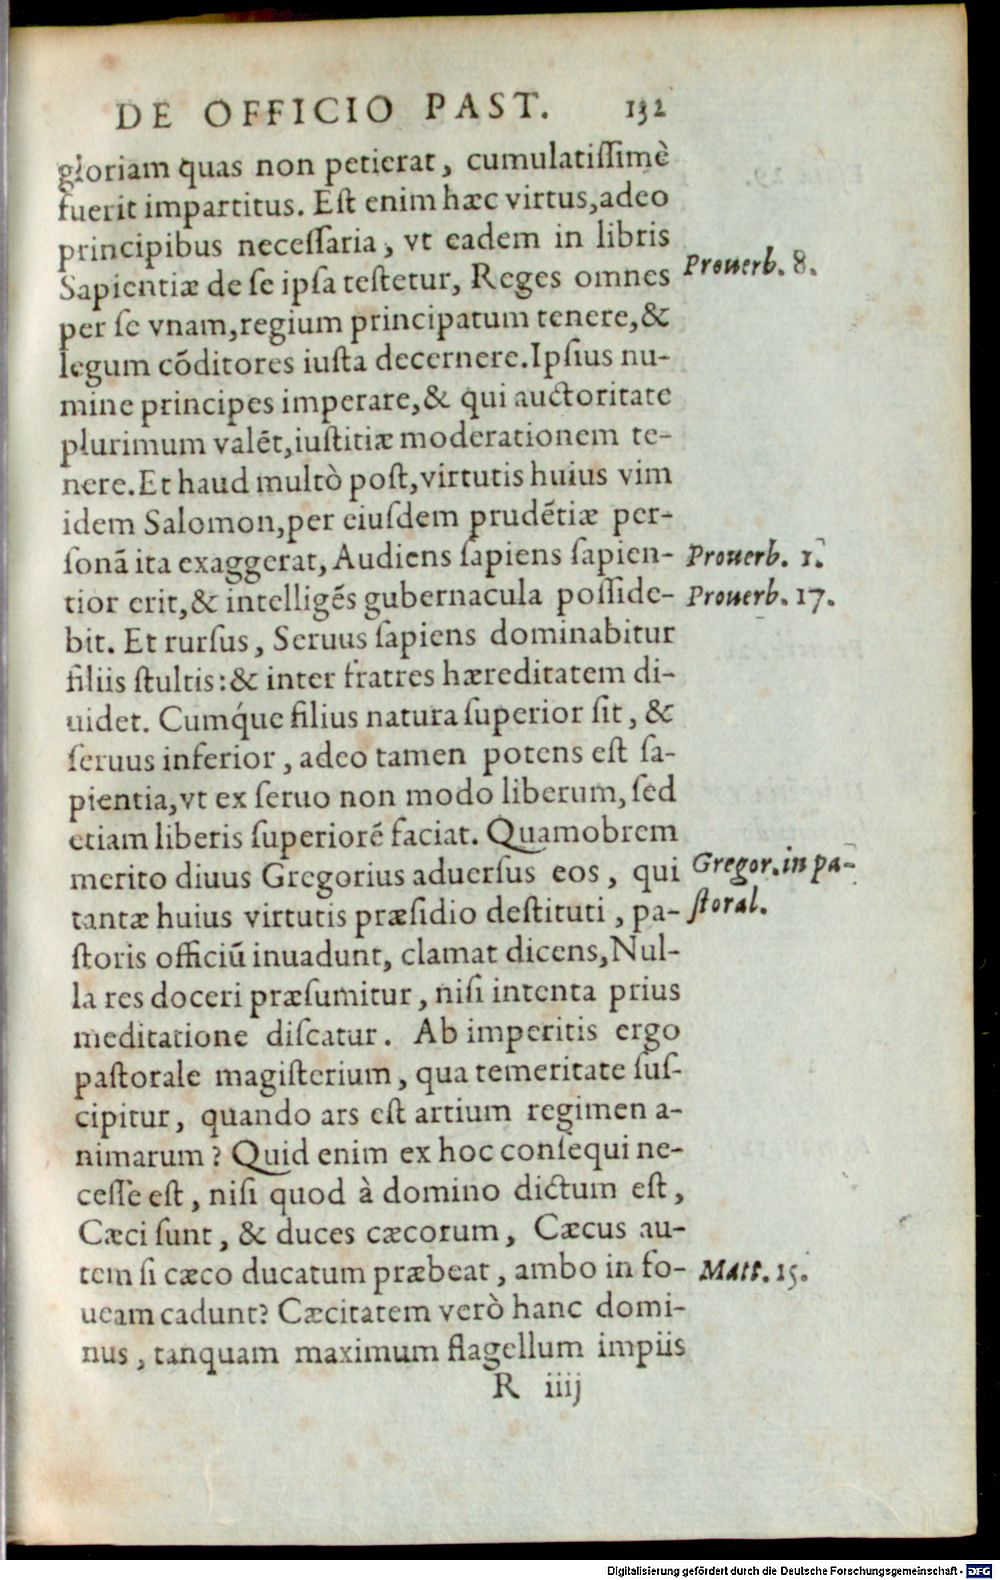 DE OFFICIO PAST. 132
gloriam quas non petierat, cumulatiſſimè
fuerit impartitus. Eſt enim hæc virtus, adeo
principibus neceſſaria, vt eadem in libris
Sapientiæ de ſe ipſa teſtetur, Reges omnes
Prouerb. 8.
per ſe vnam, regium principatum tenere, &
legum cōditores iuſta decernere. Ipſius nu-
mine principes imperare, & qui auctoritate
plurimum valēt, iuſtitiæ moderationem te-
nere. Et haud multò poſt, virtutis huius vim
idem Salomon, per eiuſdem prudētiæ per-
ſonā ita exaggerat, Audiens ſapiens ſapien-
Prouerb. 1.
tior erit, & intelligēs gubernacula poſſide-
Prouerb. 17.
bit. Et rurſus, Seruus ſapiens dominabitur
filiis ſtultis: & inter fratres hæreditatem di-
uidet. Cumq́ue filius natura ſuperior ſit, &
ſeruus inferior, adeo tamen potens eſt ſa-
pientia, vt ex ſeruo non modo liberum, ſed
etiam liberis ſuperiorē faciat. Quamobrem
merito diuus Gregorius aduerſus eos, qui
Gregor. in pa-
tantæ huius virtutis præſidio deſtituti, pa-
ſtoral.
ſtoris officiū inuadunt, clamat dicens, Nul-
la res doceri præſumitur, niſi intenta prius
meditatione diſcatur. Ab imperitis ergo
paſtorale magiſterium, qua temeritate ſuſ-
cipitur, quando ars eſt artium regimen a-
nimarum? Quid enim ex hoc conſequi ne-
ceſſe eſt, niſi quod à domino dictum eſt,
Cæci ſunt, & duces cæcorum, Cæcus au-
tem ſi cæco ducatum præbeat, ambo in fo-
Matt. 15.
ueam cadunt? Cæcitatem verò hanc domi-
nus, tanquam maximum flagellum impiis
R iiij
Digitalisierung gefördert durch die Deutsche Forschungsgemeinschaft - DFG